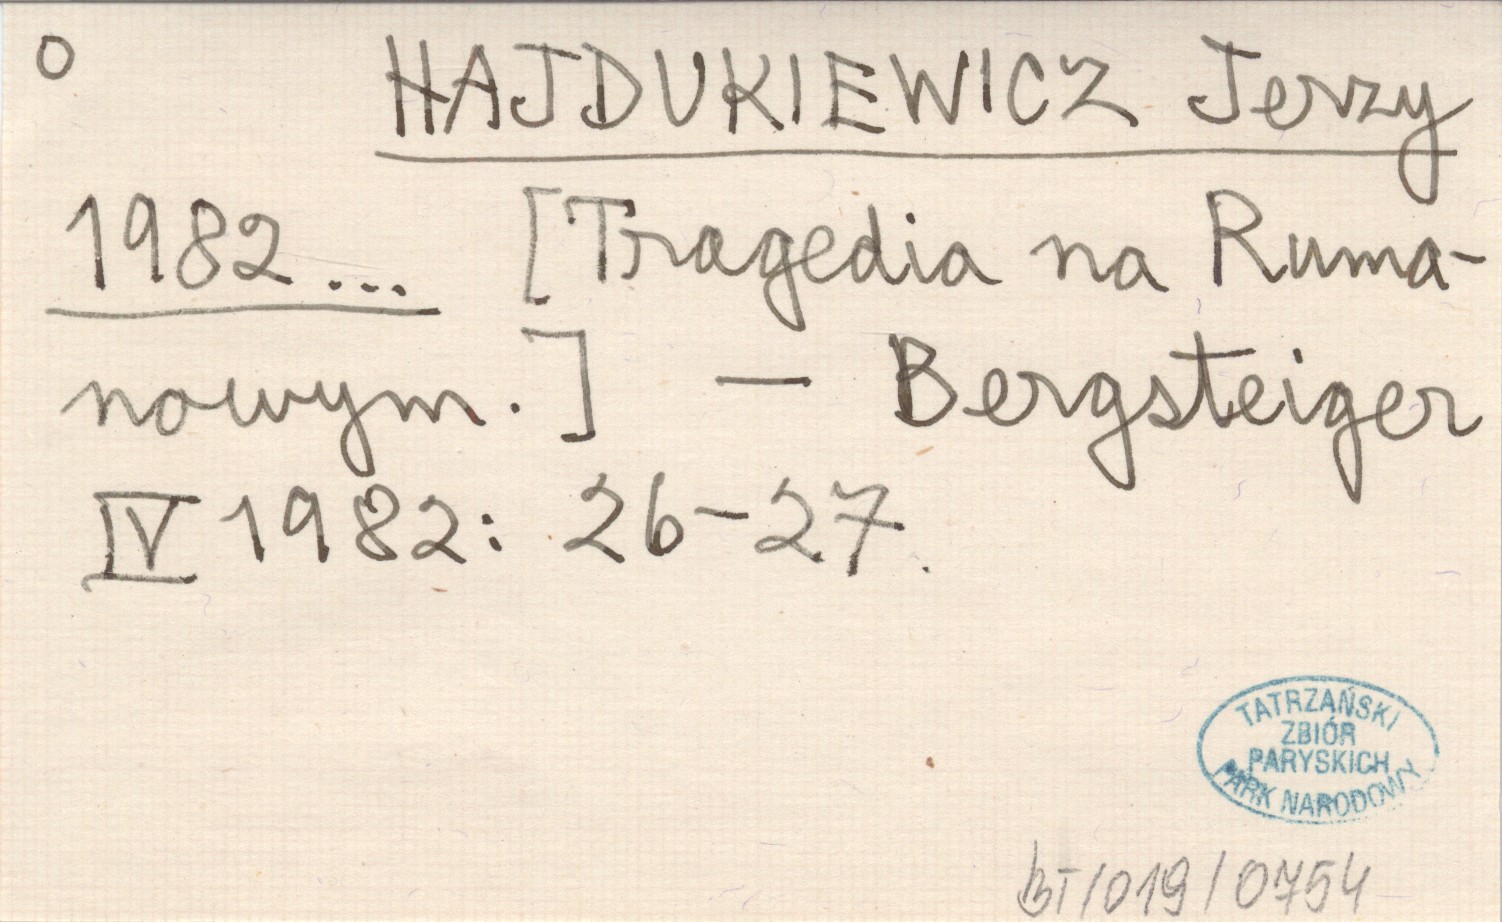 O HAJDUKIEWICZ Jerzy
1982... [Tragedia na Ruma-
nowym.] — Bergsteiger
IV 1982: 26-27.
TATRZAŃSKI
ZBIÓR
PARYSKICH
PARK NARODOWY
BT/019/0754